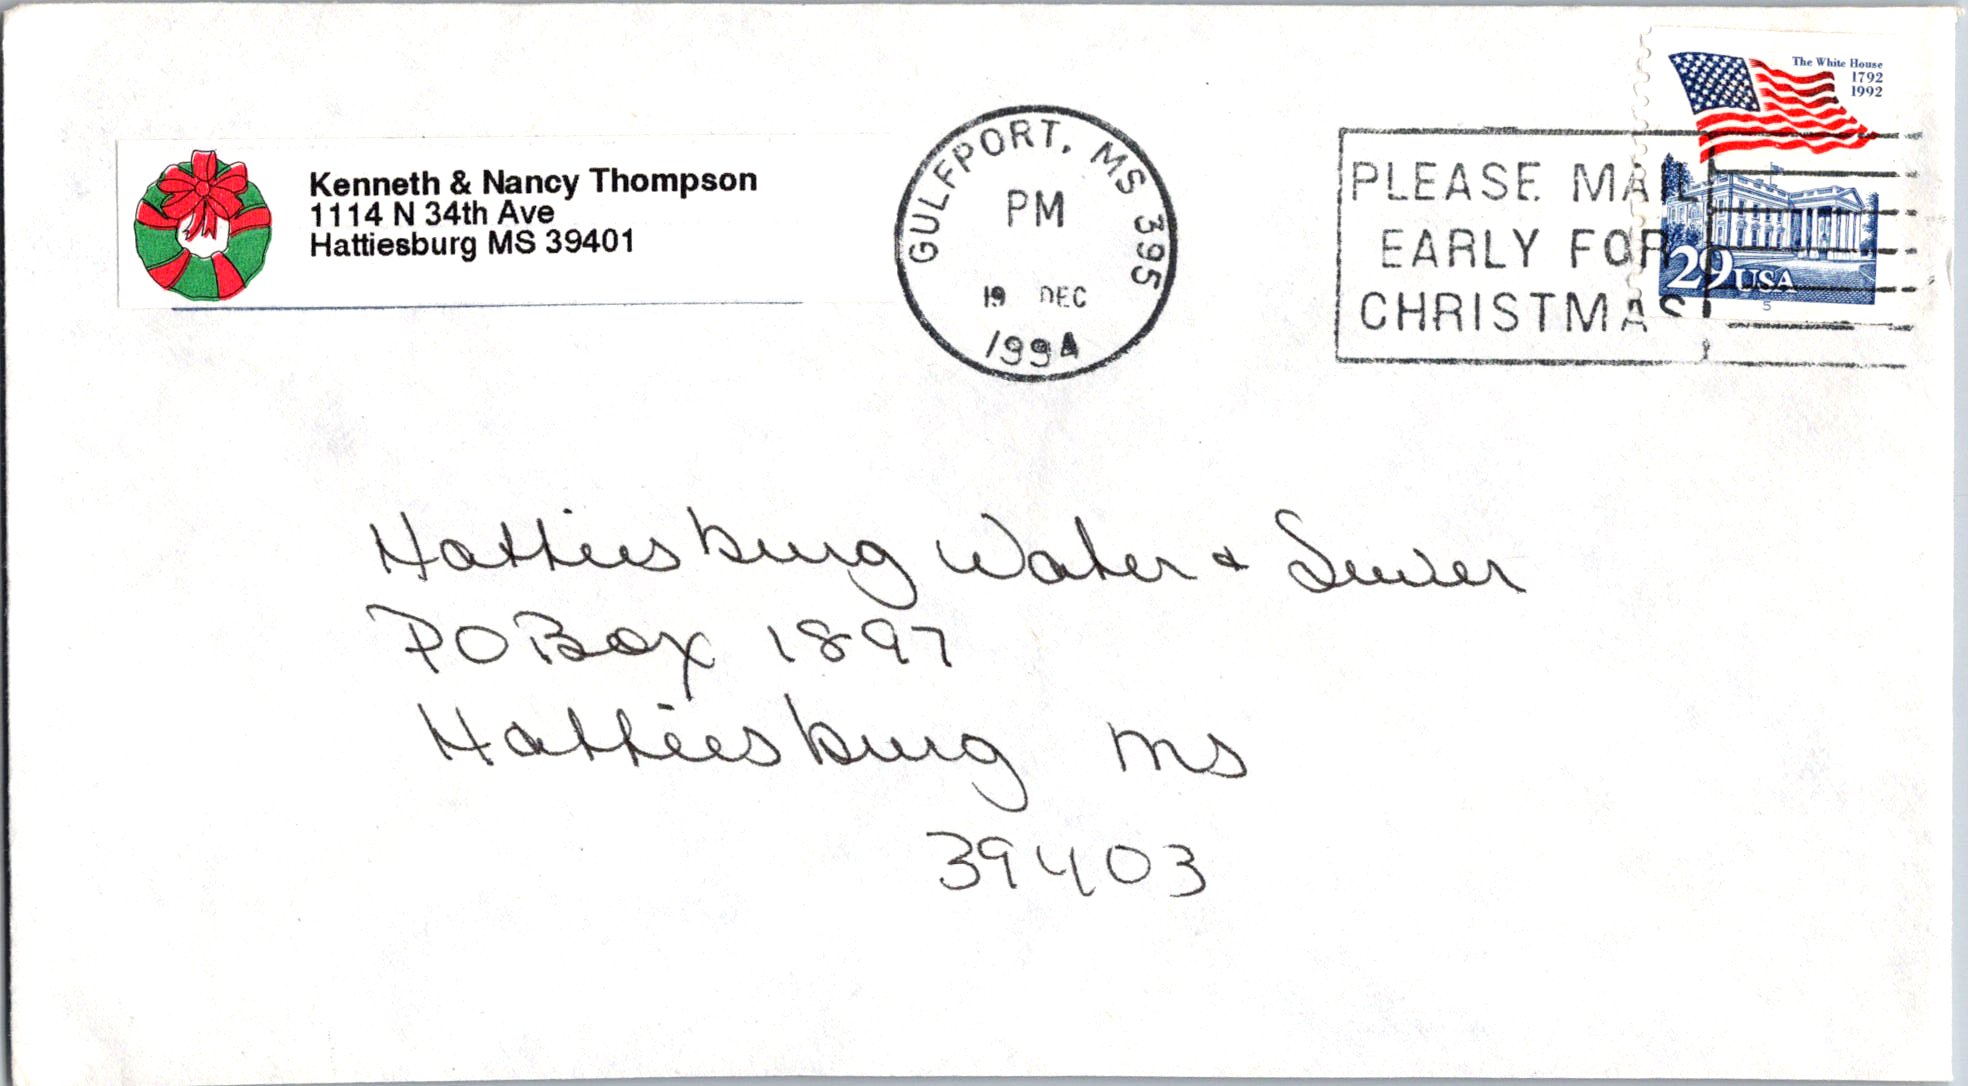 Kenneth & Nancy Thompson
1114 N 34th Ave
Hattiesburg MS 39401
GULFPORT, MS 395
PM
19 DEC
1994
PLEASE MAIL
EARLY FOR
CHRISTMAS
The White House
1792
1992
29 USA
5
Hattiesburg Water & Sewer
PO Box 1897
Hattiesburg MS
39403